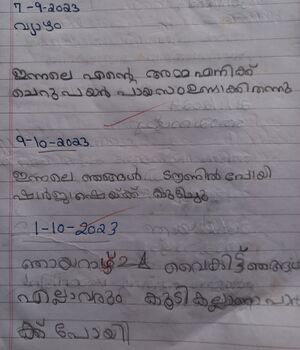 7-9-2023
വ്യാഴം
ഇന്നലെ എന്റെ അമ്മ എനിക്ക്
ചെറുപയർ പായസം ഉണ്ടാക്കിതന്നു
9-10-2023
ഇന്നലെ ഞങ്ങൾ ടൗണിൽ പോയി
ഷാർജഷെയ്ക്ക് കുടിച്ചു
1-10-2023
ഞായറാഴ്ച വൈകിട്ട് ഞങ്ങൾ
എല്ലാവരും കൂടി കല്ലാണ
ക്ക് പോയി